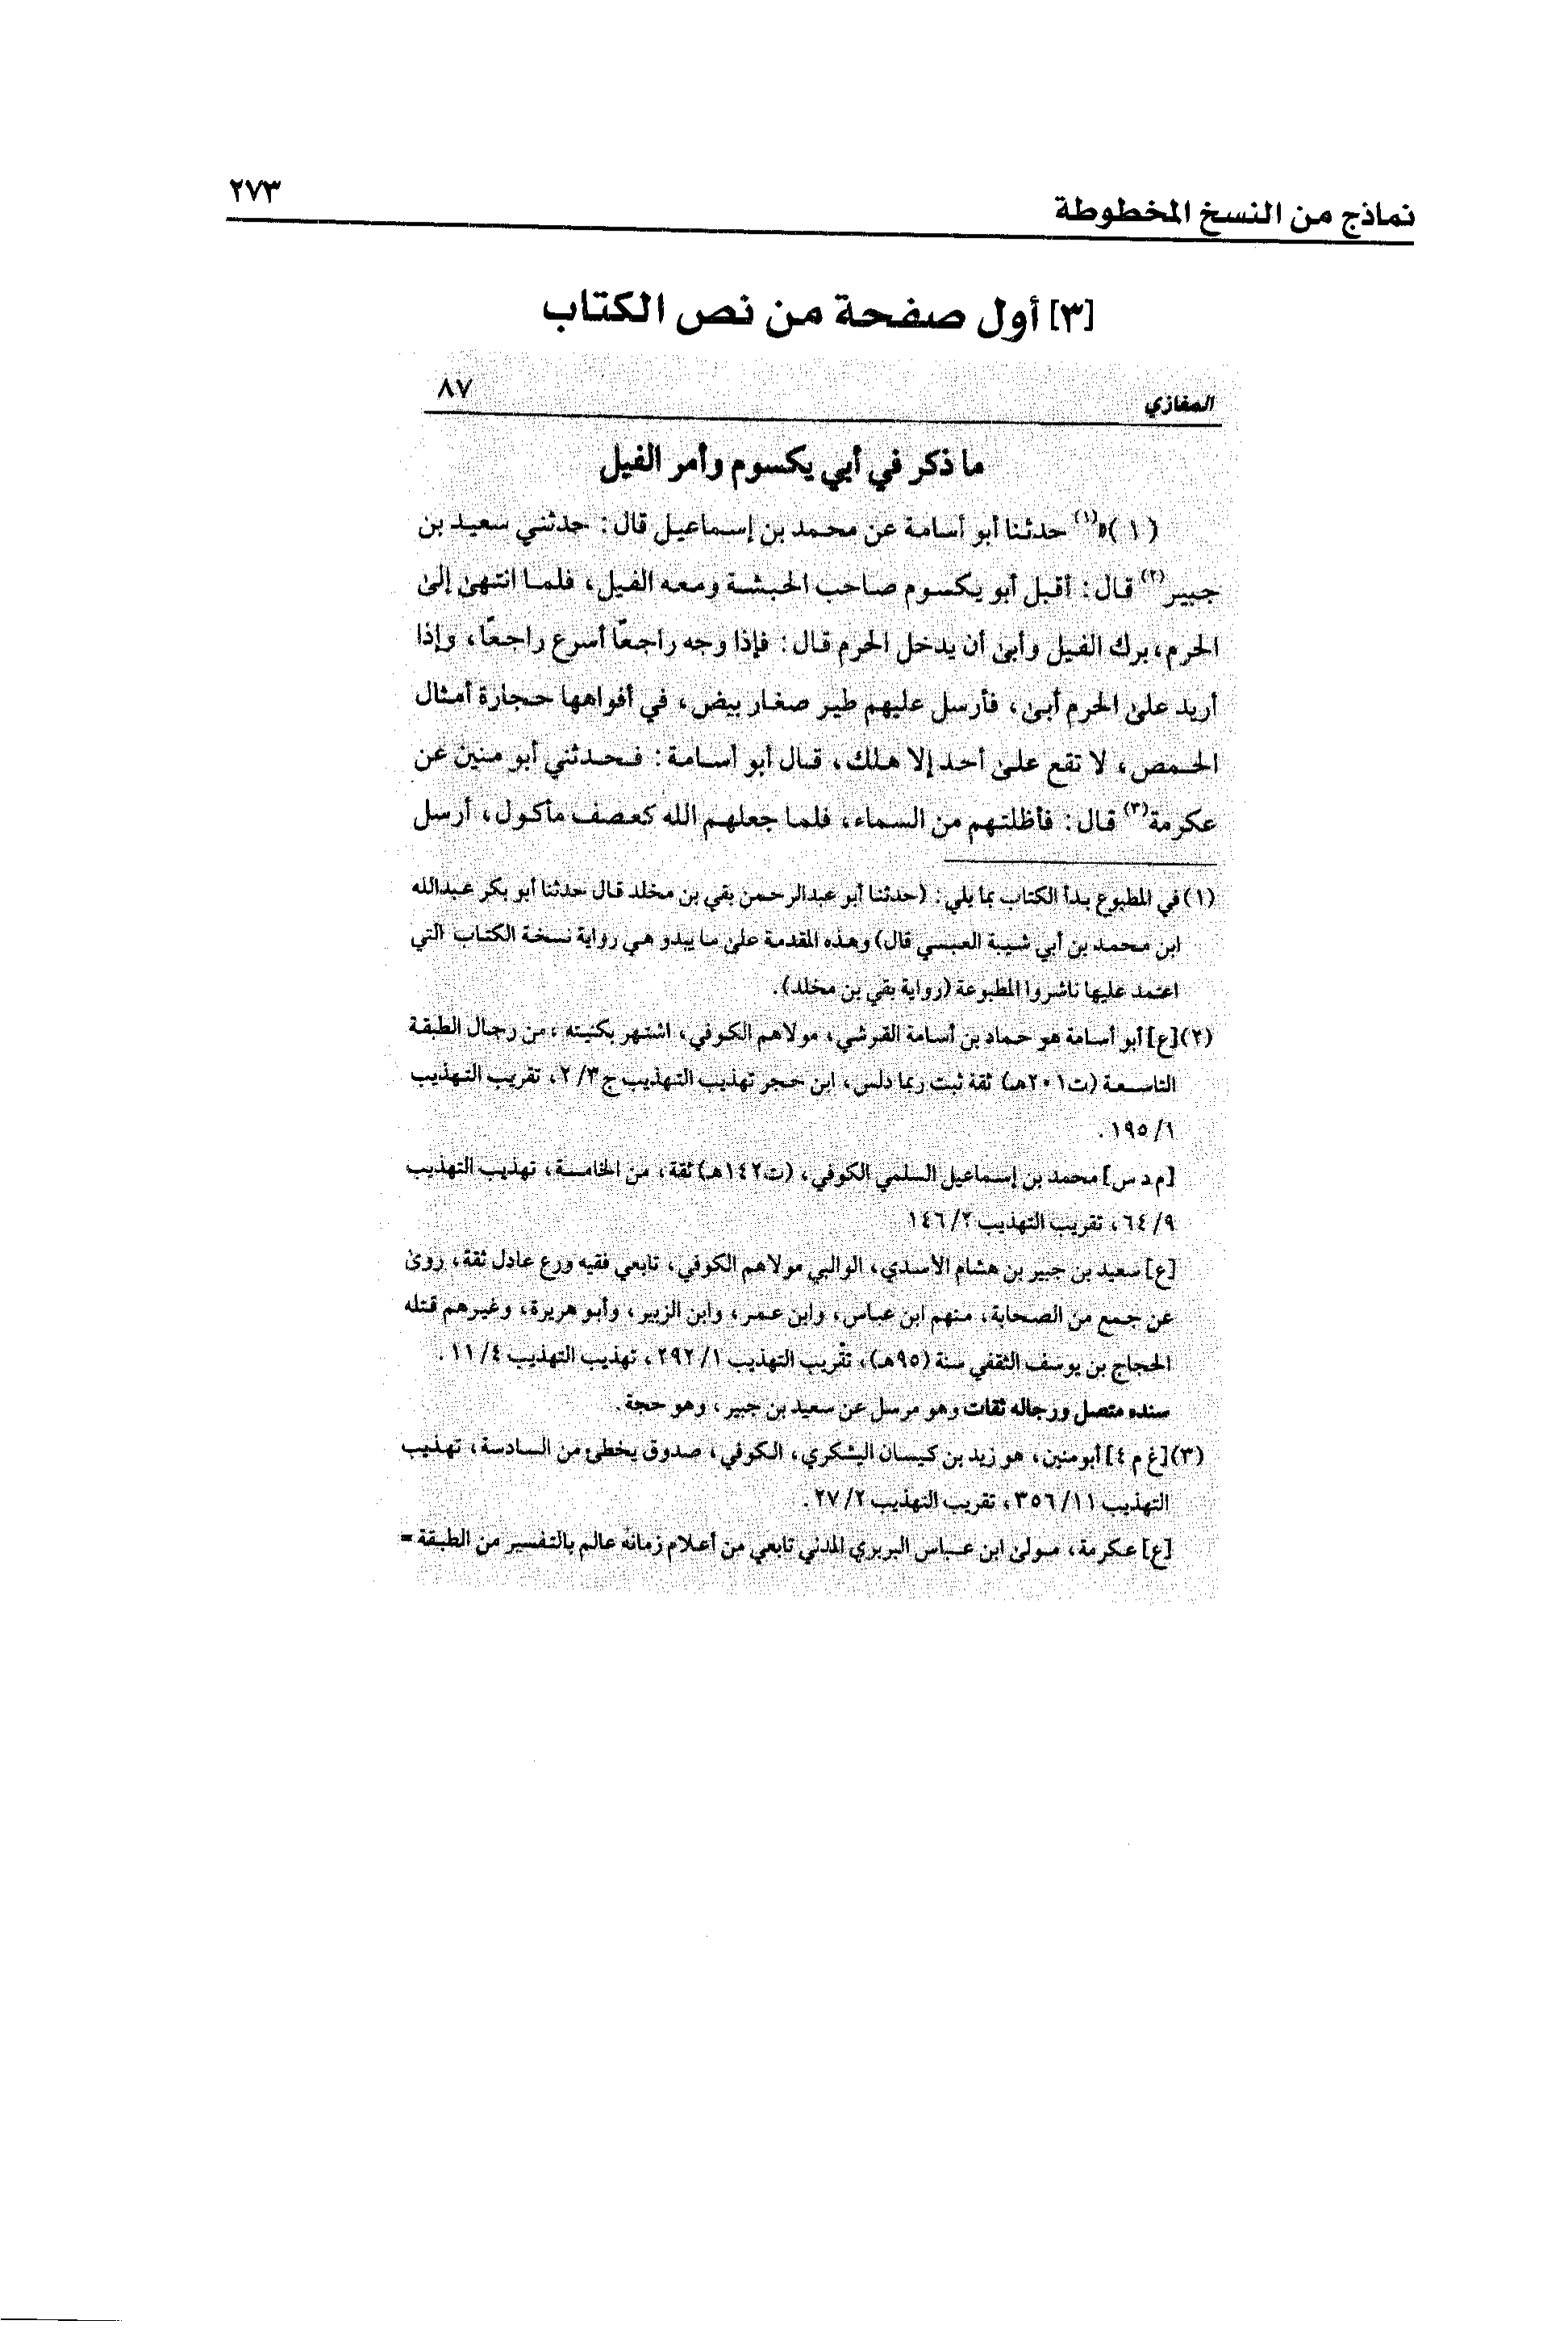 نماذج من النسخ المخطوطة
٢٧٣
[٣] أول صفحة من نص الكتاب
المغازي
٨٧
ما ذكر في أبي يكسوم وأمر الفيل
(١)٥(١) حدثنا أبو أسامة عن محمد بن إسماعيل قال: حدثني سعيد بن
جبير(٢) قال: أقبل أبو يكسوم صاحب الحبشة ومعه الفيل، فلما انتهىٰ إلىٰ
الحرم، برك الفيل وأبىٰ أن يدخل الحرم قال: فإذا وجه راجعًا أسرع راجعًا، وإذا
أريد علىٰ الحرم أبىٰ، فأرسل عليهم طير صغار بيض، في أفواهها حجارة أمثال
الحمص، لا تقع علىٰ أحد إلا هلك، قال أبو أسامة: فحدثني أبو منين عن
عكرمة(٣) قال: فأظلتهم من السماء، فلما جعلهم الله كعصف مأكول، أرسل
(١) في المطبوع بدأ الكتاب بما يلي: (حدثنا أبو عبدالرحمن بقي بن مخلد قال حدثنا أبو بكر عبدالله
ابن محمد بن أبي شيبة العبسي قال) وهذه المقدمة علىٰ ما يبدو هي رواية نسخة الكتاب التي
اعتمد عليها ناشروا المطبوعة (رواية بقي بن مخلد).
(٢) [ع] أبو أسامة هو حماد بن أسامة القرشي، مولاهم الكوفي، اشتهر بكنيته، من رجال الطبقة
التاسعة (ت٢٠١هـ) ثقة ثبت ربما دلس، ابن حجر تهذيب التهذيب ج٢/٣، تقريب التهذيب
١/ ١٩٥.
[م د س] محمد بن إسماعيل السلمي الكوفي، (ت١٤٢هـ) ثقة، من الخامسة، تهذيب التهذيب
٩/ ٦٤، تقريب التهذيب ٢/ ١٤٦
[ع] سعيد بن جبير بن هشام الأسدي، الوالبي مولاهم الكوفي، تابعي فقيه ورع عادل ثقة، روىٰ
عن جمع من الصحابة، منهم ابن عباس، وابن عمر، وابن الزبير، وأبو هريرة، وغيرهم قتله
الحجاج بن يوسف الثقفي سنة (٩٥هـ)، تقريب التهذيب ١/ ٢٩٢، تهذيب التهذيب ٤/ ١١.
سنده متصل ورجاله ثقات وهو مرسل عن سعيد بن جبير، وهو حجة.
(٣) [غ م ٤] أبو منين، هو زيد بن كيسان اليشكري، الكوفي، صدوق يخطئ من السادسة، تهذيب
التهذيب ١١/ ٣٥٦، تقريب التهذيب ٢/ ٢٧.
[ع] عكرمة، مولىٰ ابن عباس البربري المدني تابعي من أعلام زمانه عالم بالتفسير من الطبقة =